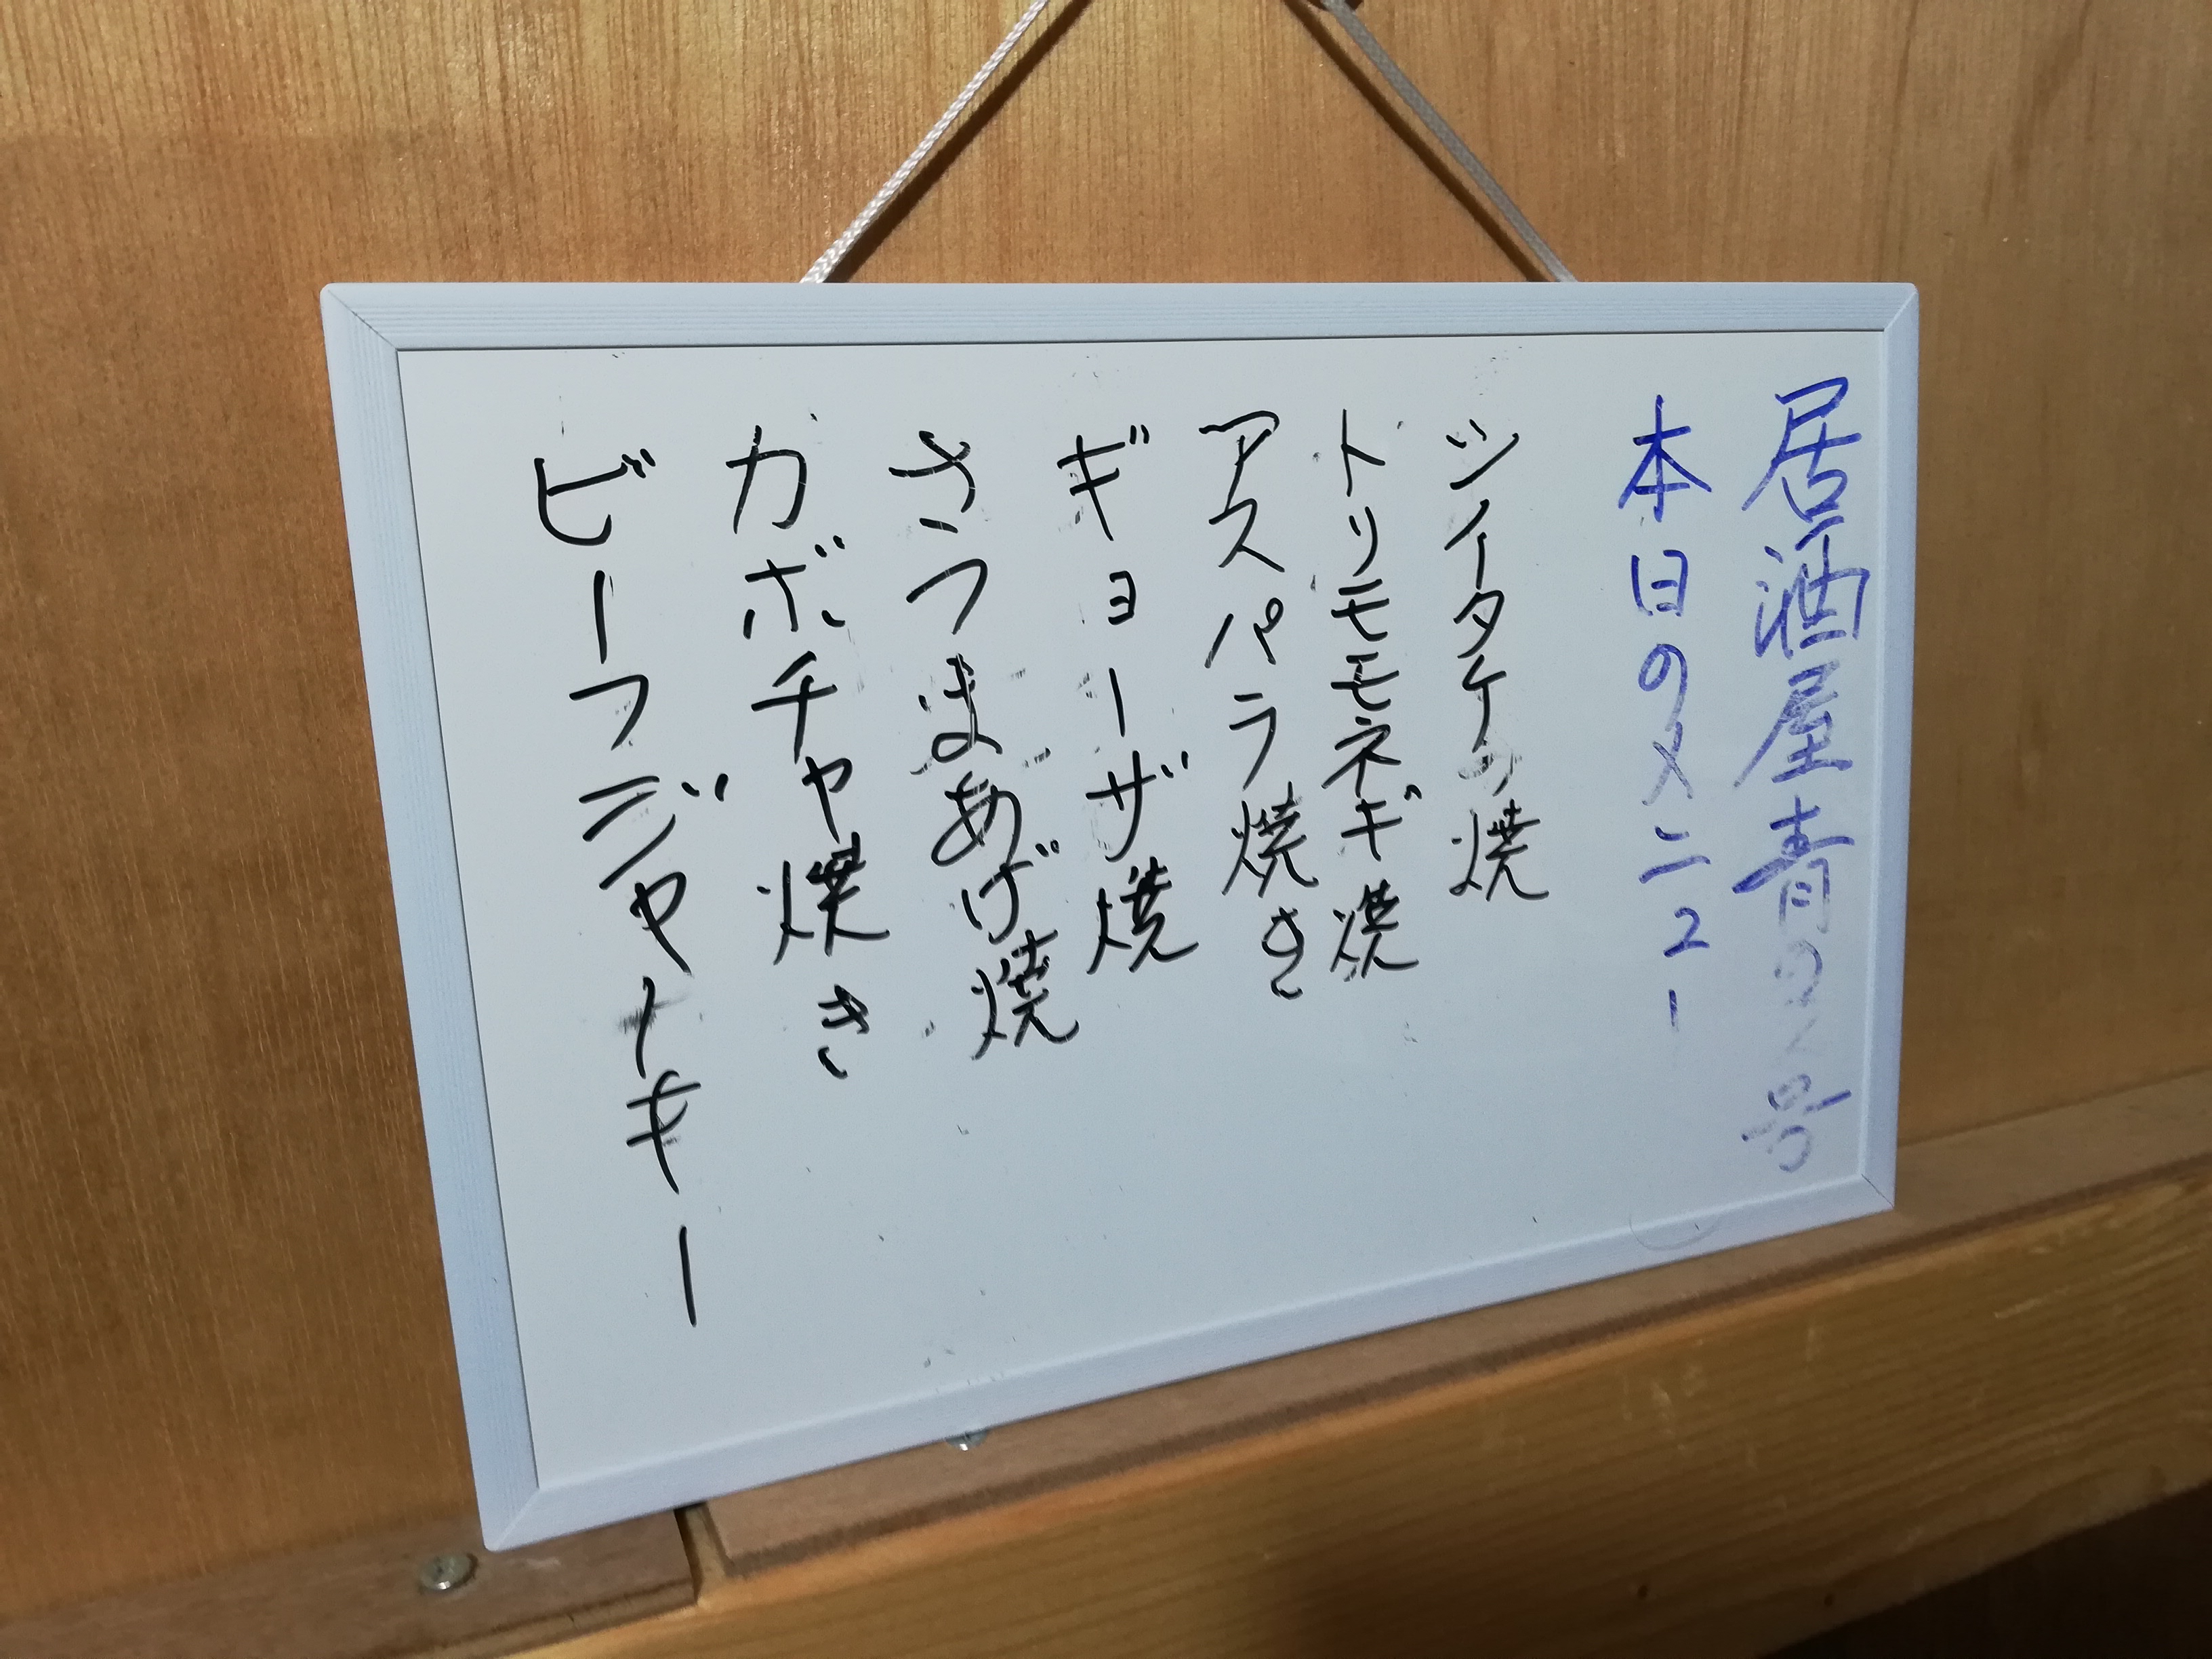 居酒屋青の入号
本日のメニュー
シイタケの焼
トリモモネギ焼
アスパラ焼き
ギョーザ焼
さつまあげ焼
カボチャ焼き
ビーフジャーキー